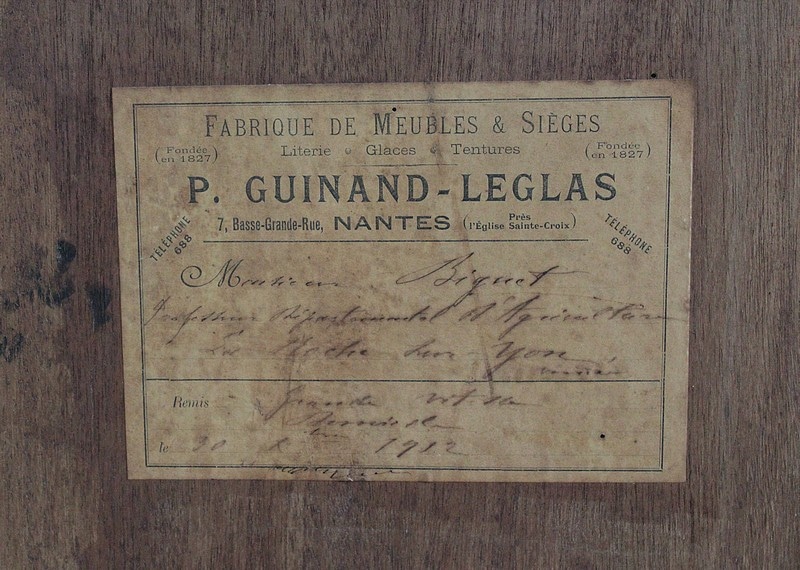 FABRIQUE DE MEUBLES & SIÈGES
(Fondée en 1827) Literie Glaces Tentures (Fondée en 1827)
P. GUINAND-LEGLAS
7, Basse-Grande-Rue, NANTES (Près l'Église Sainte-Croix)
TÉLÉPHONE 688
TÉLÉPHONE 688
Monsieur Biguet
Professeur Départemental d'Agriculture
La Roche sur-Yon
Remis Grande vitesse
le 30 1912